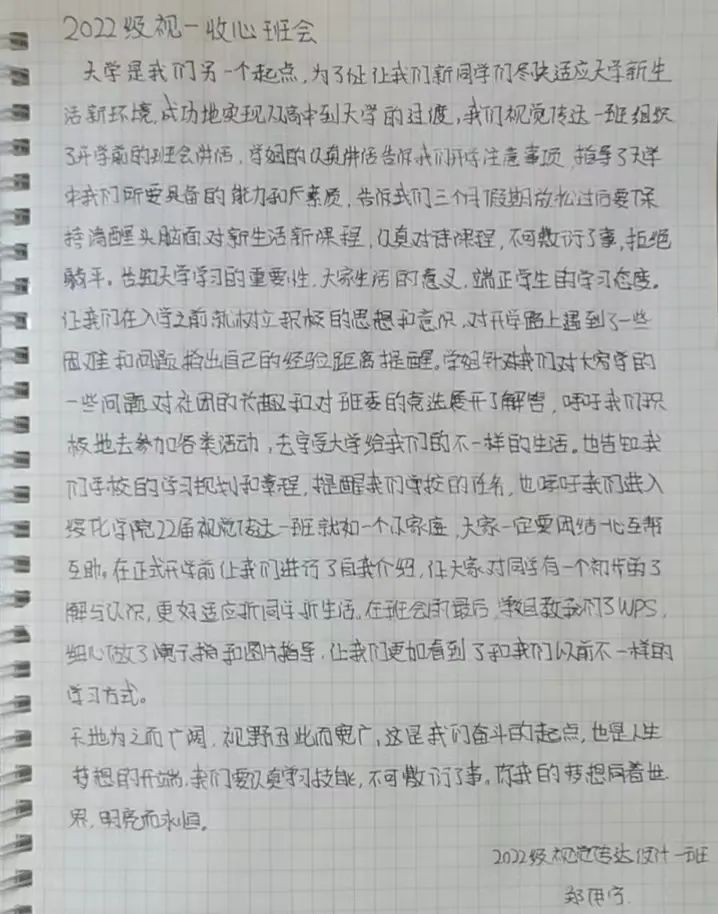 2022级视一收心班会
大学是我们另一个起点,为了让让我们新同学们尽快适应大学新生
活新环境,成功地实现从高中到大学的过渡,我们视觉传达一班组织
了开学前的班会讲话,学姐的认真讲话告诉我们开学注意事项,指导了大学
中我们所要具备的能力和素质,告诉我们三个月假期放松过后要保
持清醒头脑面对新生活新课程,认真对待课程,不可敷衍了事,拒绝
躺平。告知大学学习的重要性,大家生活的意义,端正学生的学习态度。
让我们在入学之前就树立积极的思想和意识,对开学路上遇到了一些
困难和问题给出自己的经验距离提醒。学姐针对我们对大家常的
一些问题对社团的兴趣和对班委的竞选展开了解答,呼吁我们积
极地去参加各类活动,去享受大学给我们的不一样的生活。也告知我
们学校的学习规划和章程,提醒我们学校的任务,也呼吁我们进入
绥化学院22届视觉传达一班就如一个小家庭,大家一定要团结一心互帮
互助。在正式开学前让我们进行了自我介绍,让大家对同学有一个初步的了
解与认识,更好适应新同学新生活。在班会的最后,学姐教我们了WPS,
细心做了演示和图片指导,让我们更加看到了和我们以前不一样的
学习方式。
天地为之而广阔,视野因此而宽广,这是我们奋斗的起点,也是人生
梦想的开端,我们要认真学习技能,不可敷衍了事。你我的梦想向着世
界,明亮而永恒。
2022级视觉传达设计一班